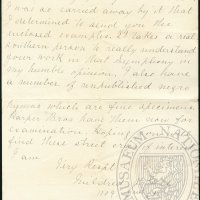 I was so carried away by it that
I determined to send you the
enclosed examples. It takes a real
Southern person to really understand
your work in that Symphony in
my humble opinion, I also have
a number of unpublished negro
hymns which are fine specimens.
Harper Bros have them now for
examination. Hoping
find these street cries of interest
I am
Very Resp
Mildred